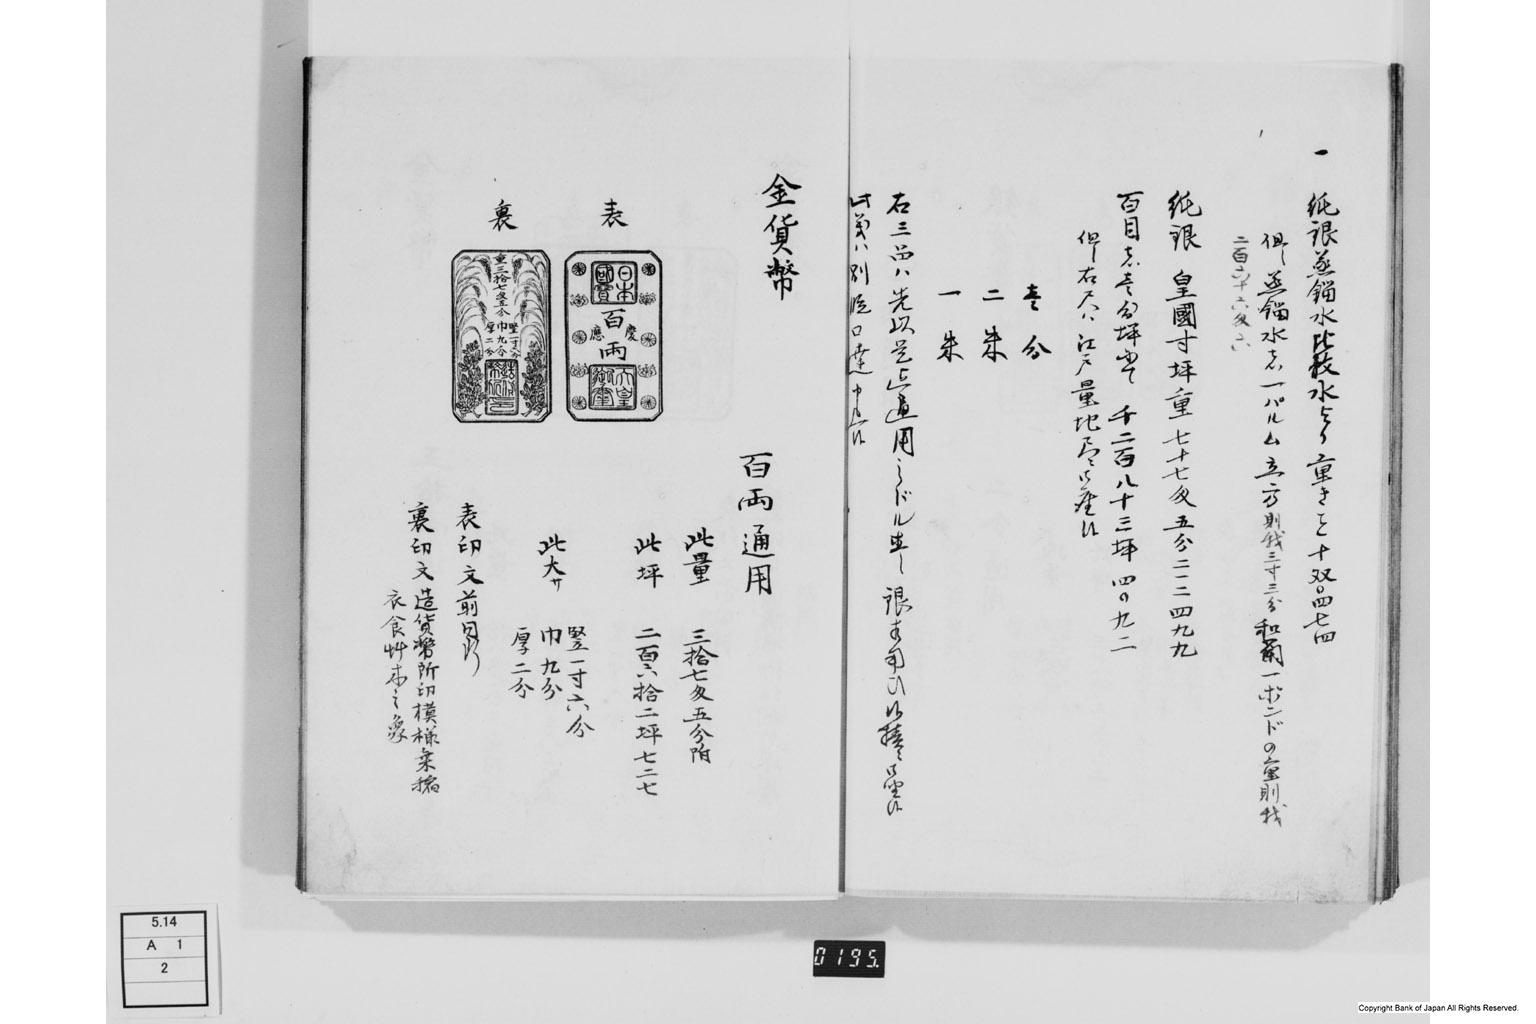 一 純銀蒸鎦水比較水より重きこと十双〇四七四
但し蒸鎦水は一パルム立方則我三寸三分和蘭一ポンドの重則我
二百六十六匁六
純銀 皇國寸坪重七十七匁五分二二四九九
百目は壱分坪 千二百八十三坪四〇九二
但し右尺ハ江戸量地尺
壱分
二朱
一朱
右三品ハ先以是迄通用之ドル 銀
別段口達申上候
金貨幣
百両通用
此量 三拾七匁五分
此坪 二百六拾二坪七二七
此大サ
竪一寸六分
巾九分
厚二分
表印文前同断
裏印文造貨幣所印模様粟稲
衣食艸木之象
表
日本
國寶
百兩
慶應
天皇
御璽
裏
重三拾七匁五分
竪一寸六分
巾九分
厚二分
5.14
A 1
2
0195.
Copyright Bank of Japan All Rights Reserved.